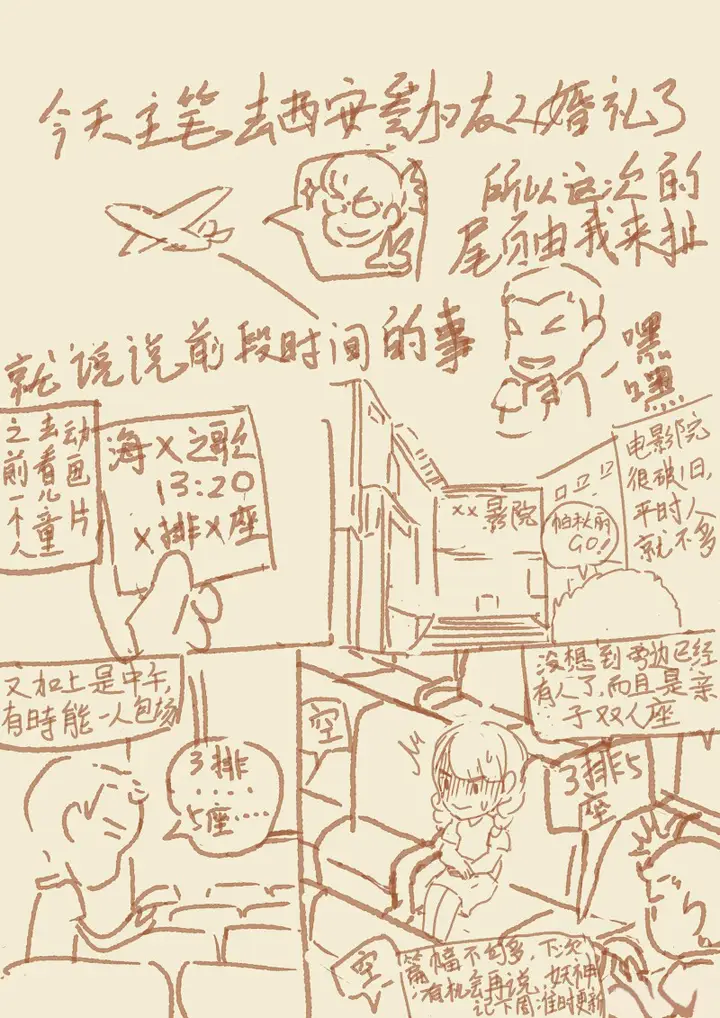 今天主笔去西安参加友人婚礼了
所以这次的
尾页由我来扯
就说说前段时间的事
嘿
嘿
之前一个人
去看儿童
动画片
海X之歌
13:20
X排X座
XX影院
帕秋丽
GO!
电影院
很破旧,
平时人
就不多
又加上是中午,
有時能一人包场
3排
....
5座....
没想到旁边已经
有人了,而且是亲
子双人座
空
3排5
座
空
篇幅不句多,下次
有机会再说,妖神
记下周准时更新